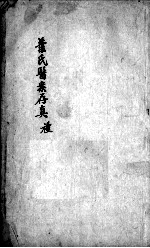 葉氏醫案存真